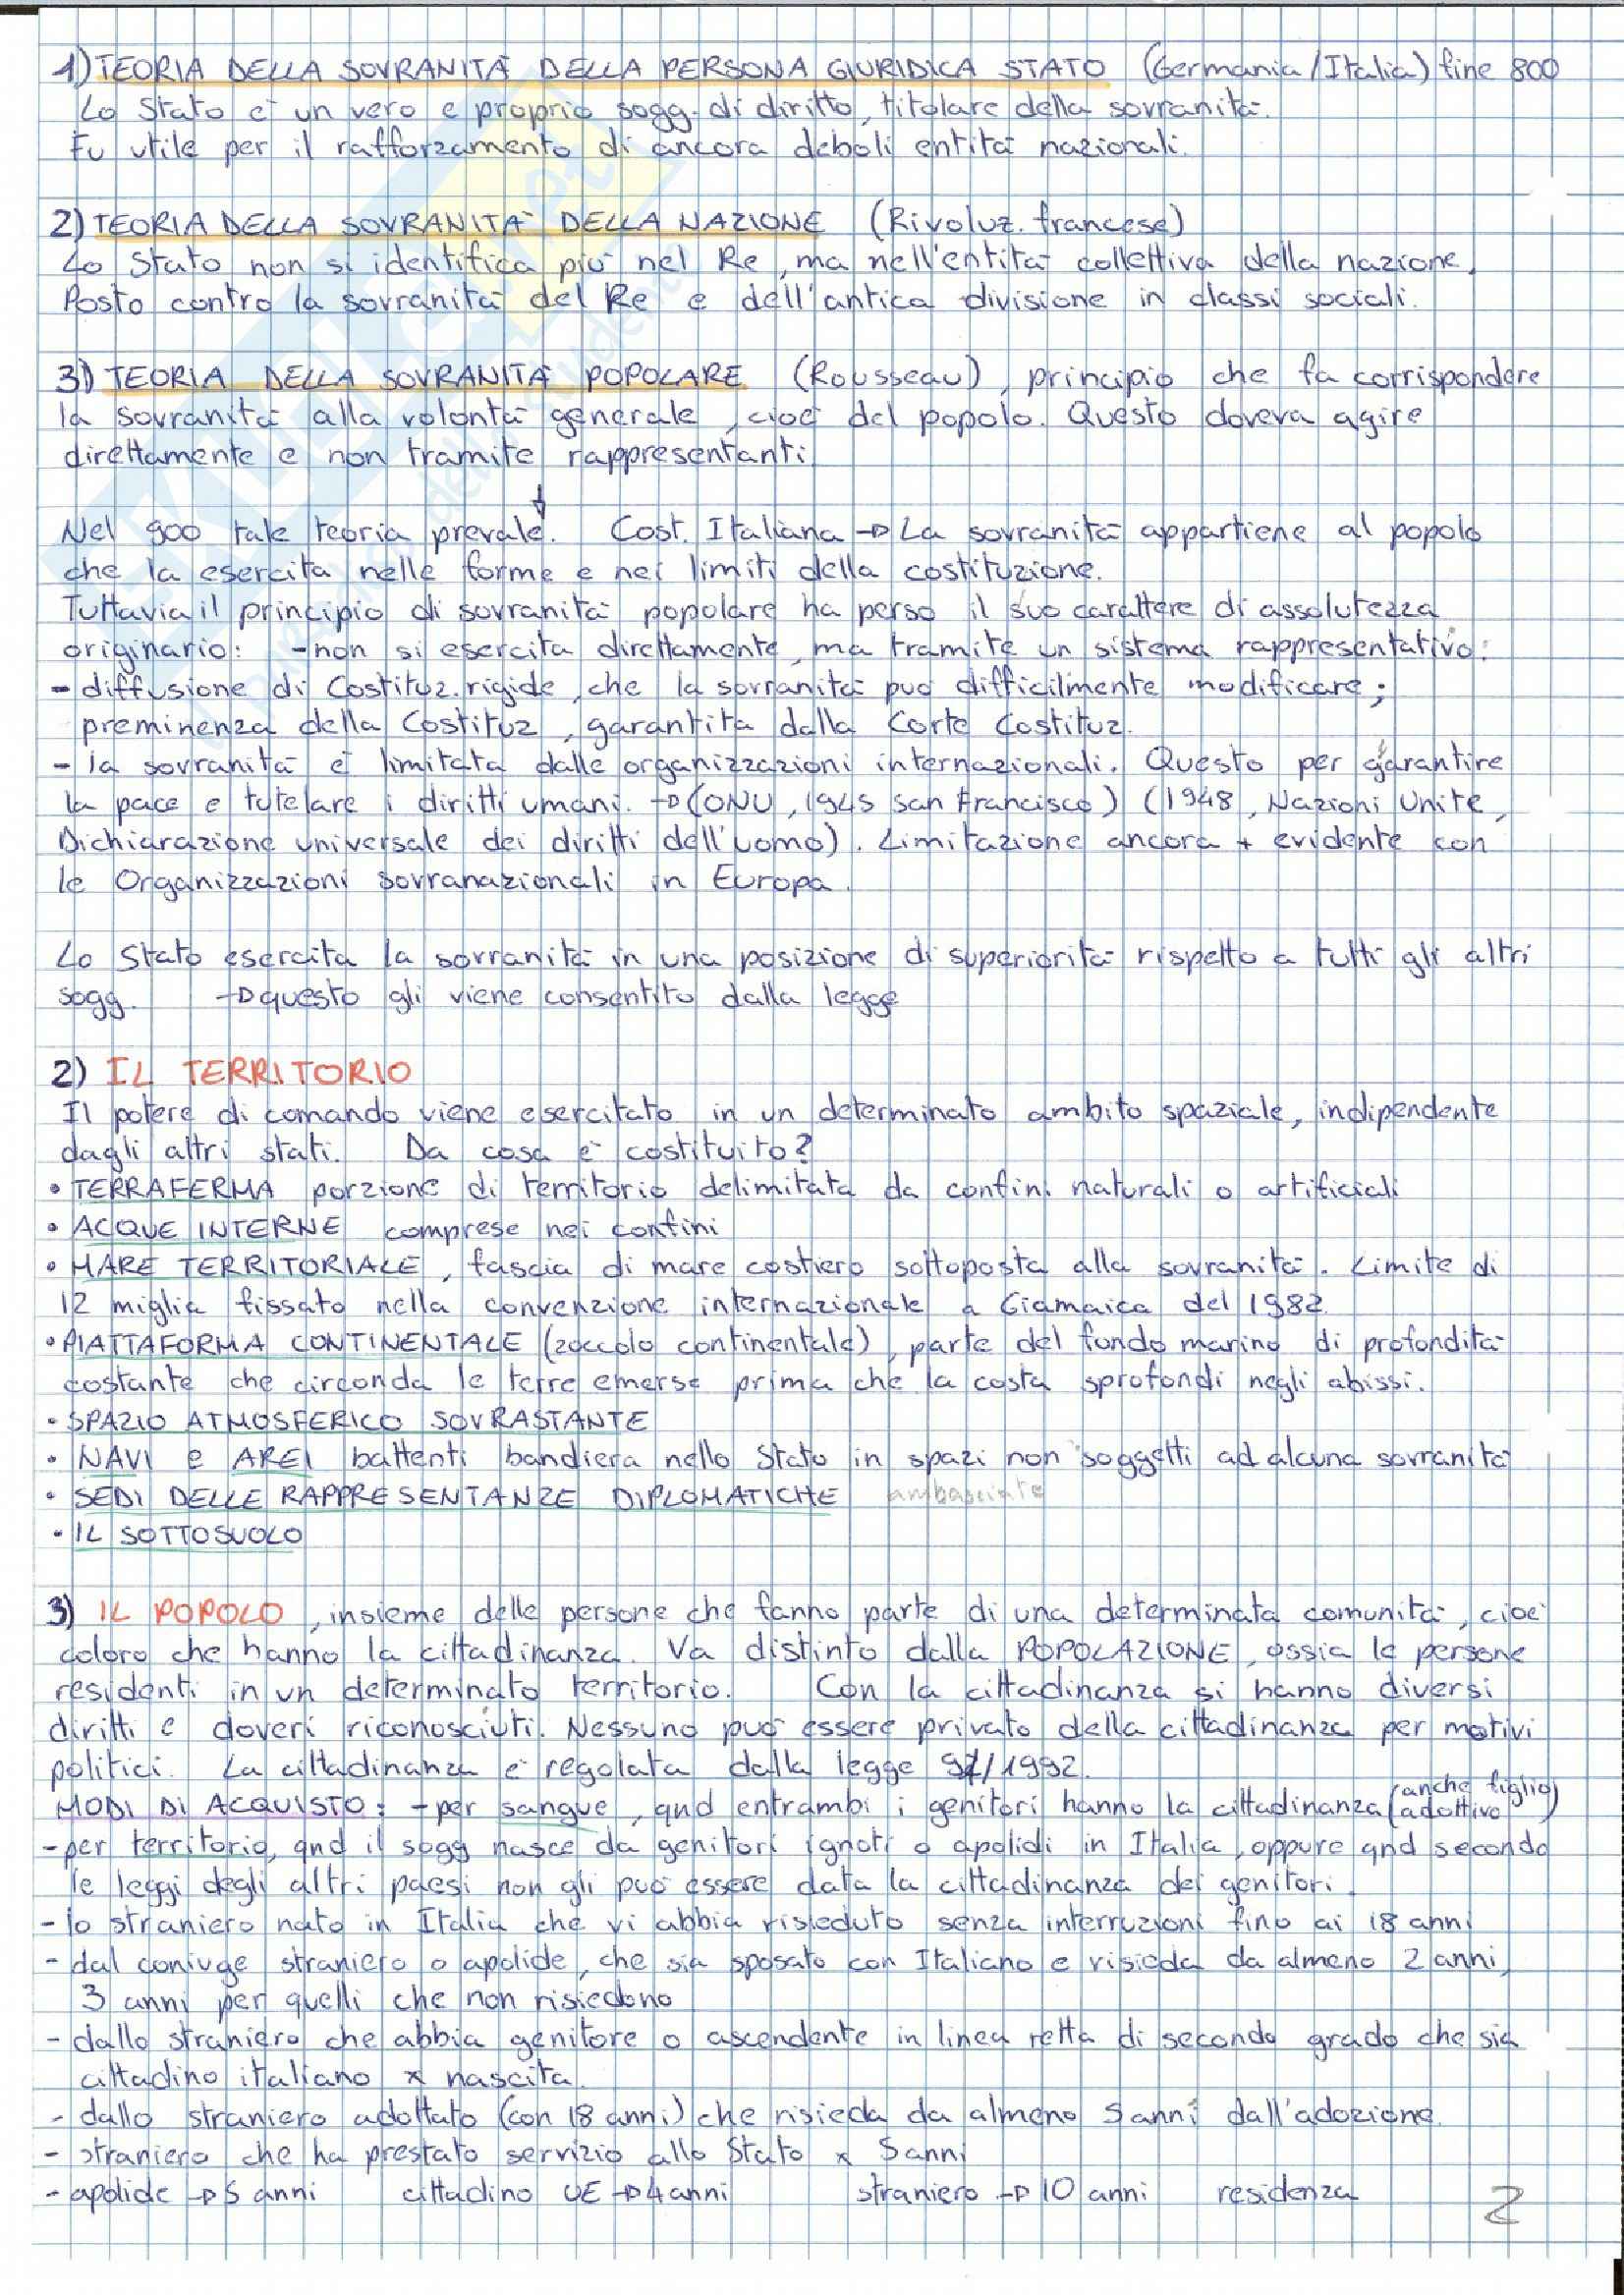 1) TEORIA DELLA SOVRANITÀ DELLA PERSONA GIURIDICA STATO (Germania/Italia) fine 800
Lo Stato è un vero e proprio sogg. di diritto, titolare della sovranità.
Fu utile per il rafforzamento di ancora deboli entità nazionali.
2) TEORIA DELLA SOVRANITÀ DELLA NAZIONE (Rivoluz. francese)
Lo Stato non si identifica più nel Re, ma nell'entità collettiva della nazione.
Posto contro la sovranità del Re e dell'antica divisione in classi sociali.
3) TEORIA DELLA SOVRANITÀ POPOLARE (Rousseau), principio che fa corrispondere
la sovranità alla volontà generale, cioè del popolo. Questo doveva agire
direttamente e non tramite rappresentanti
↓
Nel 900 tale teoria prevale. Cost. Italiana → La sovranità appartiene al popolo
che la esercita nelle forme e nei limiti della costituzione.
Tuttavia il principio di sovranità popolare ha perso il suo carattere di assolutezza
originario: - non si esercita direttamente, ma tramite un sistema rappresentativo:
- diffusione di Costituz. rigide, che la sovranità può difficilmente modificare;
preminenza della Costituz, garantita dalla Corte Costituz.
- la sovranità è limitata dalle organizzazioni internazionali. Questo per garantire
la pace e tutelare i diritti umani. → (ONU, 1945 San Francisco) (1948, Nazioni Unite,
Dichiarazione universale dei diritti dell'uomo). Limitazione ancora + evidente con
le Organizzazioni sovranazionali in Europa.
Lo Stato esercita la sovranità in una posizione di superiorità rispetto a tutti gli altri
sogg. → questo gli viene consentito dalla legge
2) IL TERRITORIO
Il potere di comando viene esercitato in un determinato ambito spaziale, indipendente
dagli altri stati. Da cosa è costituito?
• TERRAFERMA porzione di territorio delimitata da confini naturali o artificiali
• ACQUE INTERNE comprese nei confini
• MARE TERRITORIALE, fascia di mare costiero sottoposta alla sovranità. Limite di
12 miglia fissato nella convenzione internazionale a Giamaica del 1982.
• PIATTAFORMA CONTINENTALE (zoccolo continentale), parte del fondo marino di profondità
costante che circonda le terre emerse prima che la costa sprofondi negli abissi.
• SPAZIO ATMOSFERICO SOVRASTANTE
• NAVI e AREI battenti bandiera nello Stato in spazi non soggetti ad alcuna sovranità
• SEDI DELLE RAPPRESENTANZE DIPLOMATICHE ambasciate
• IL SOTTOSUOLO
3) IL POPOLO, insieme delle persone che fanno parte di una determinata comunità, cioè
coloro che hanno la cittadinanza. Va distinto dalla POPOLAZIONE, ossia le persone
residenti in un determinato territorio. Con la cittadinanza si hanno diversi
diritti e doveri riconosciuti. Nessuno può essere privato della cittadinanza per motivi
politici. La cittadinanza è regolata dalla legge 91/1992.
MODI DI ACQUISTO: - per sangue, qnd entrambi i genitori hanno la cittadinanza (anche figlio adottivo)
- per territorio, qnd il sogg nasce da genitori ignoti o apolidi in Italia, oppure qnd secondo
le leggi degli altri paesi non gli può essere data la cittadinanza dei genitori.
- lo straniero nato in Italia che vi abbia risieduto senza interruzioni fino ai 18 anni
- dal coniuge straniero o apolide, che sia sposato con Italiano e risieda da almeno 2 anni,
3 anni per quelli che non risiedono
- dallo straniero che abbia genitore o ascendente in linea retta di secondo grado che sia
cittadino italiano x nascita.
- dallo straniero adottato (con 18 anni) che risieda da almeno 5 anni dall'adozione.
- straniero che ha prestato servizio allo Stato x 5 anni
- apolide → 5 anni cittadino UE → 4 anni straniero → 10 anni residenza
2